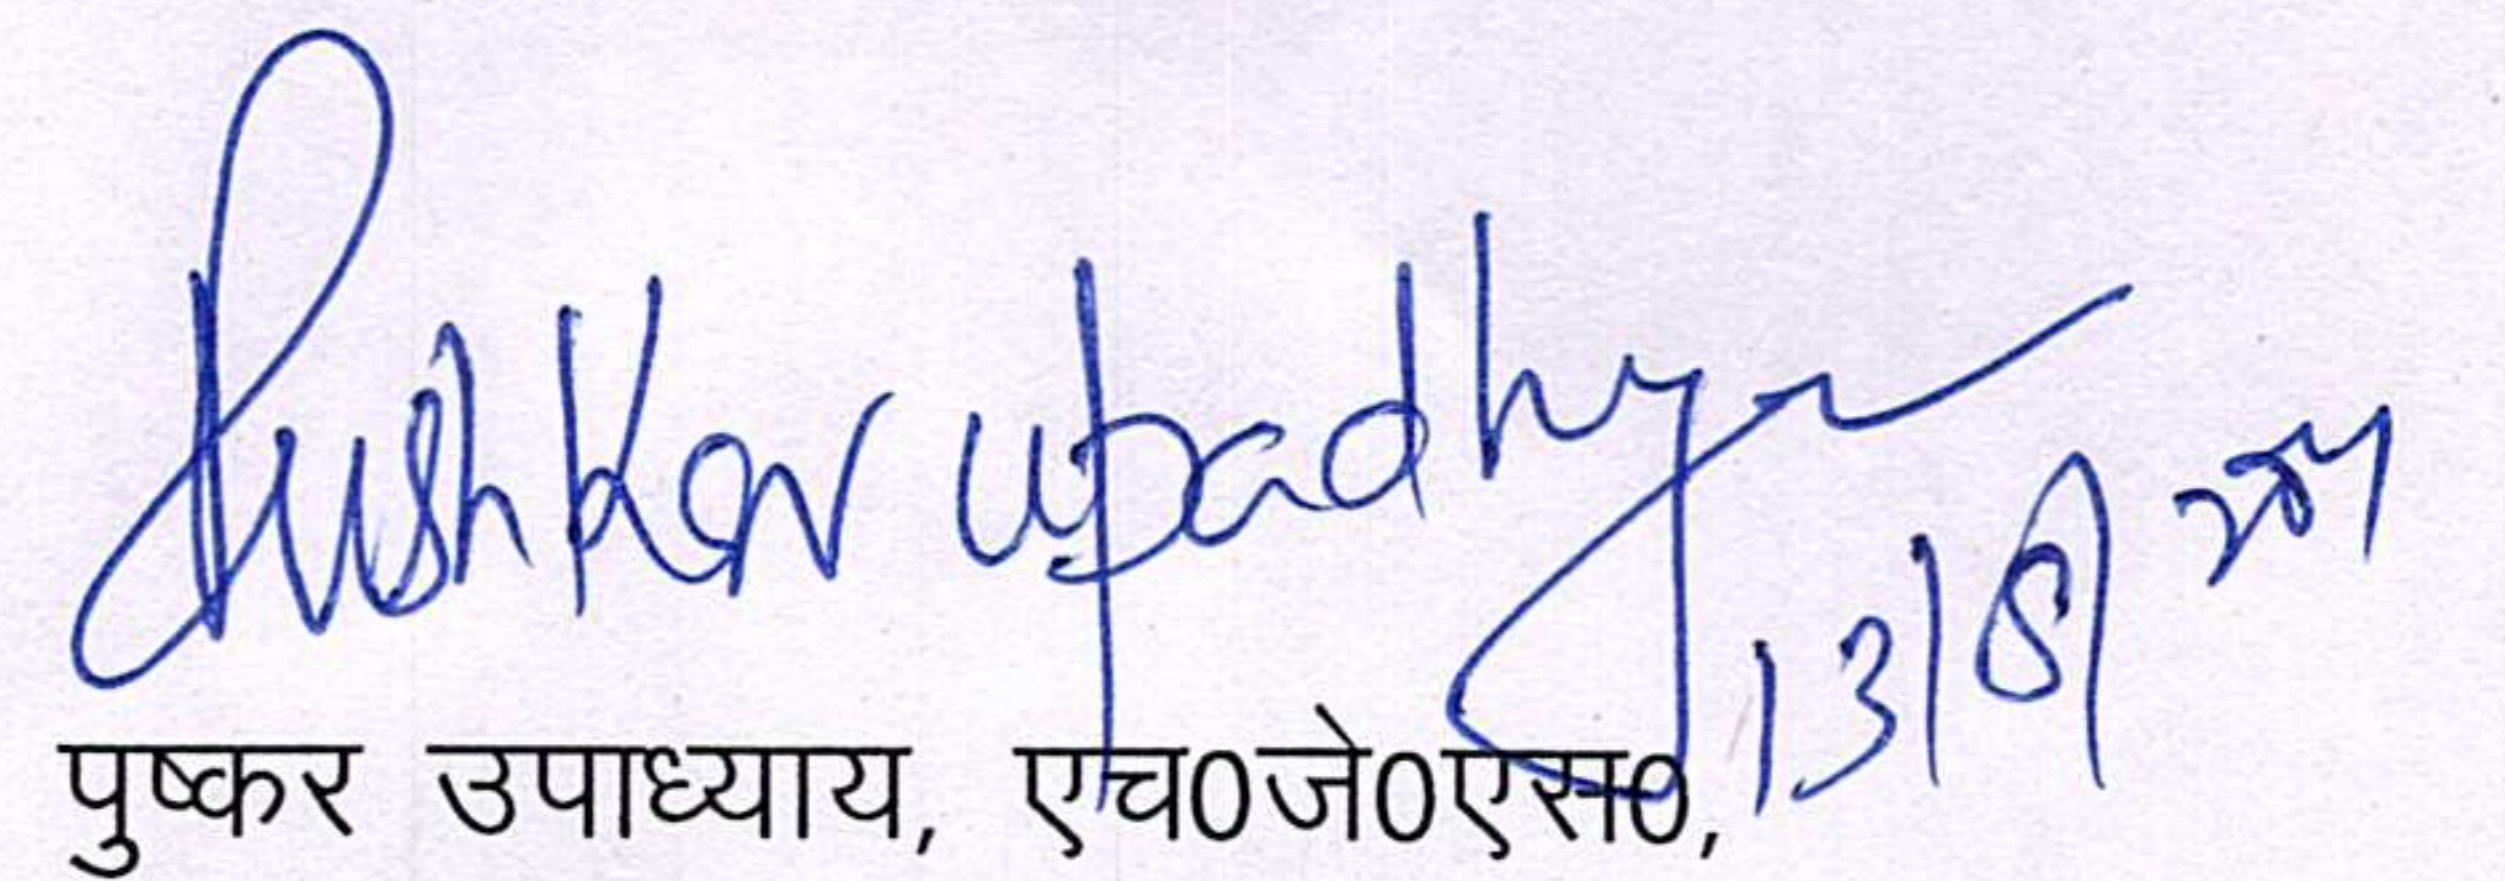 Pushkar upadhyay
13/8/
पुष्कर उपाध्याय, एच0जे0एस0,